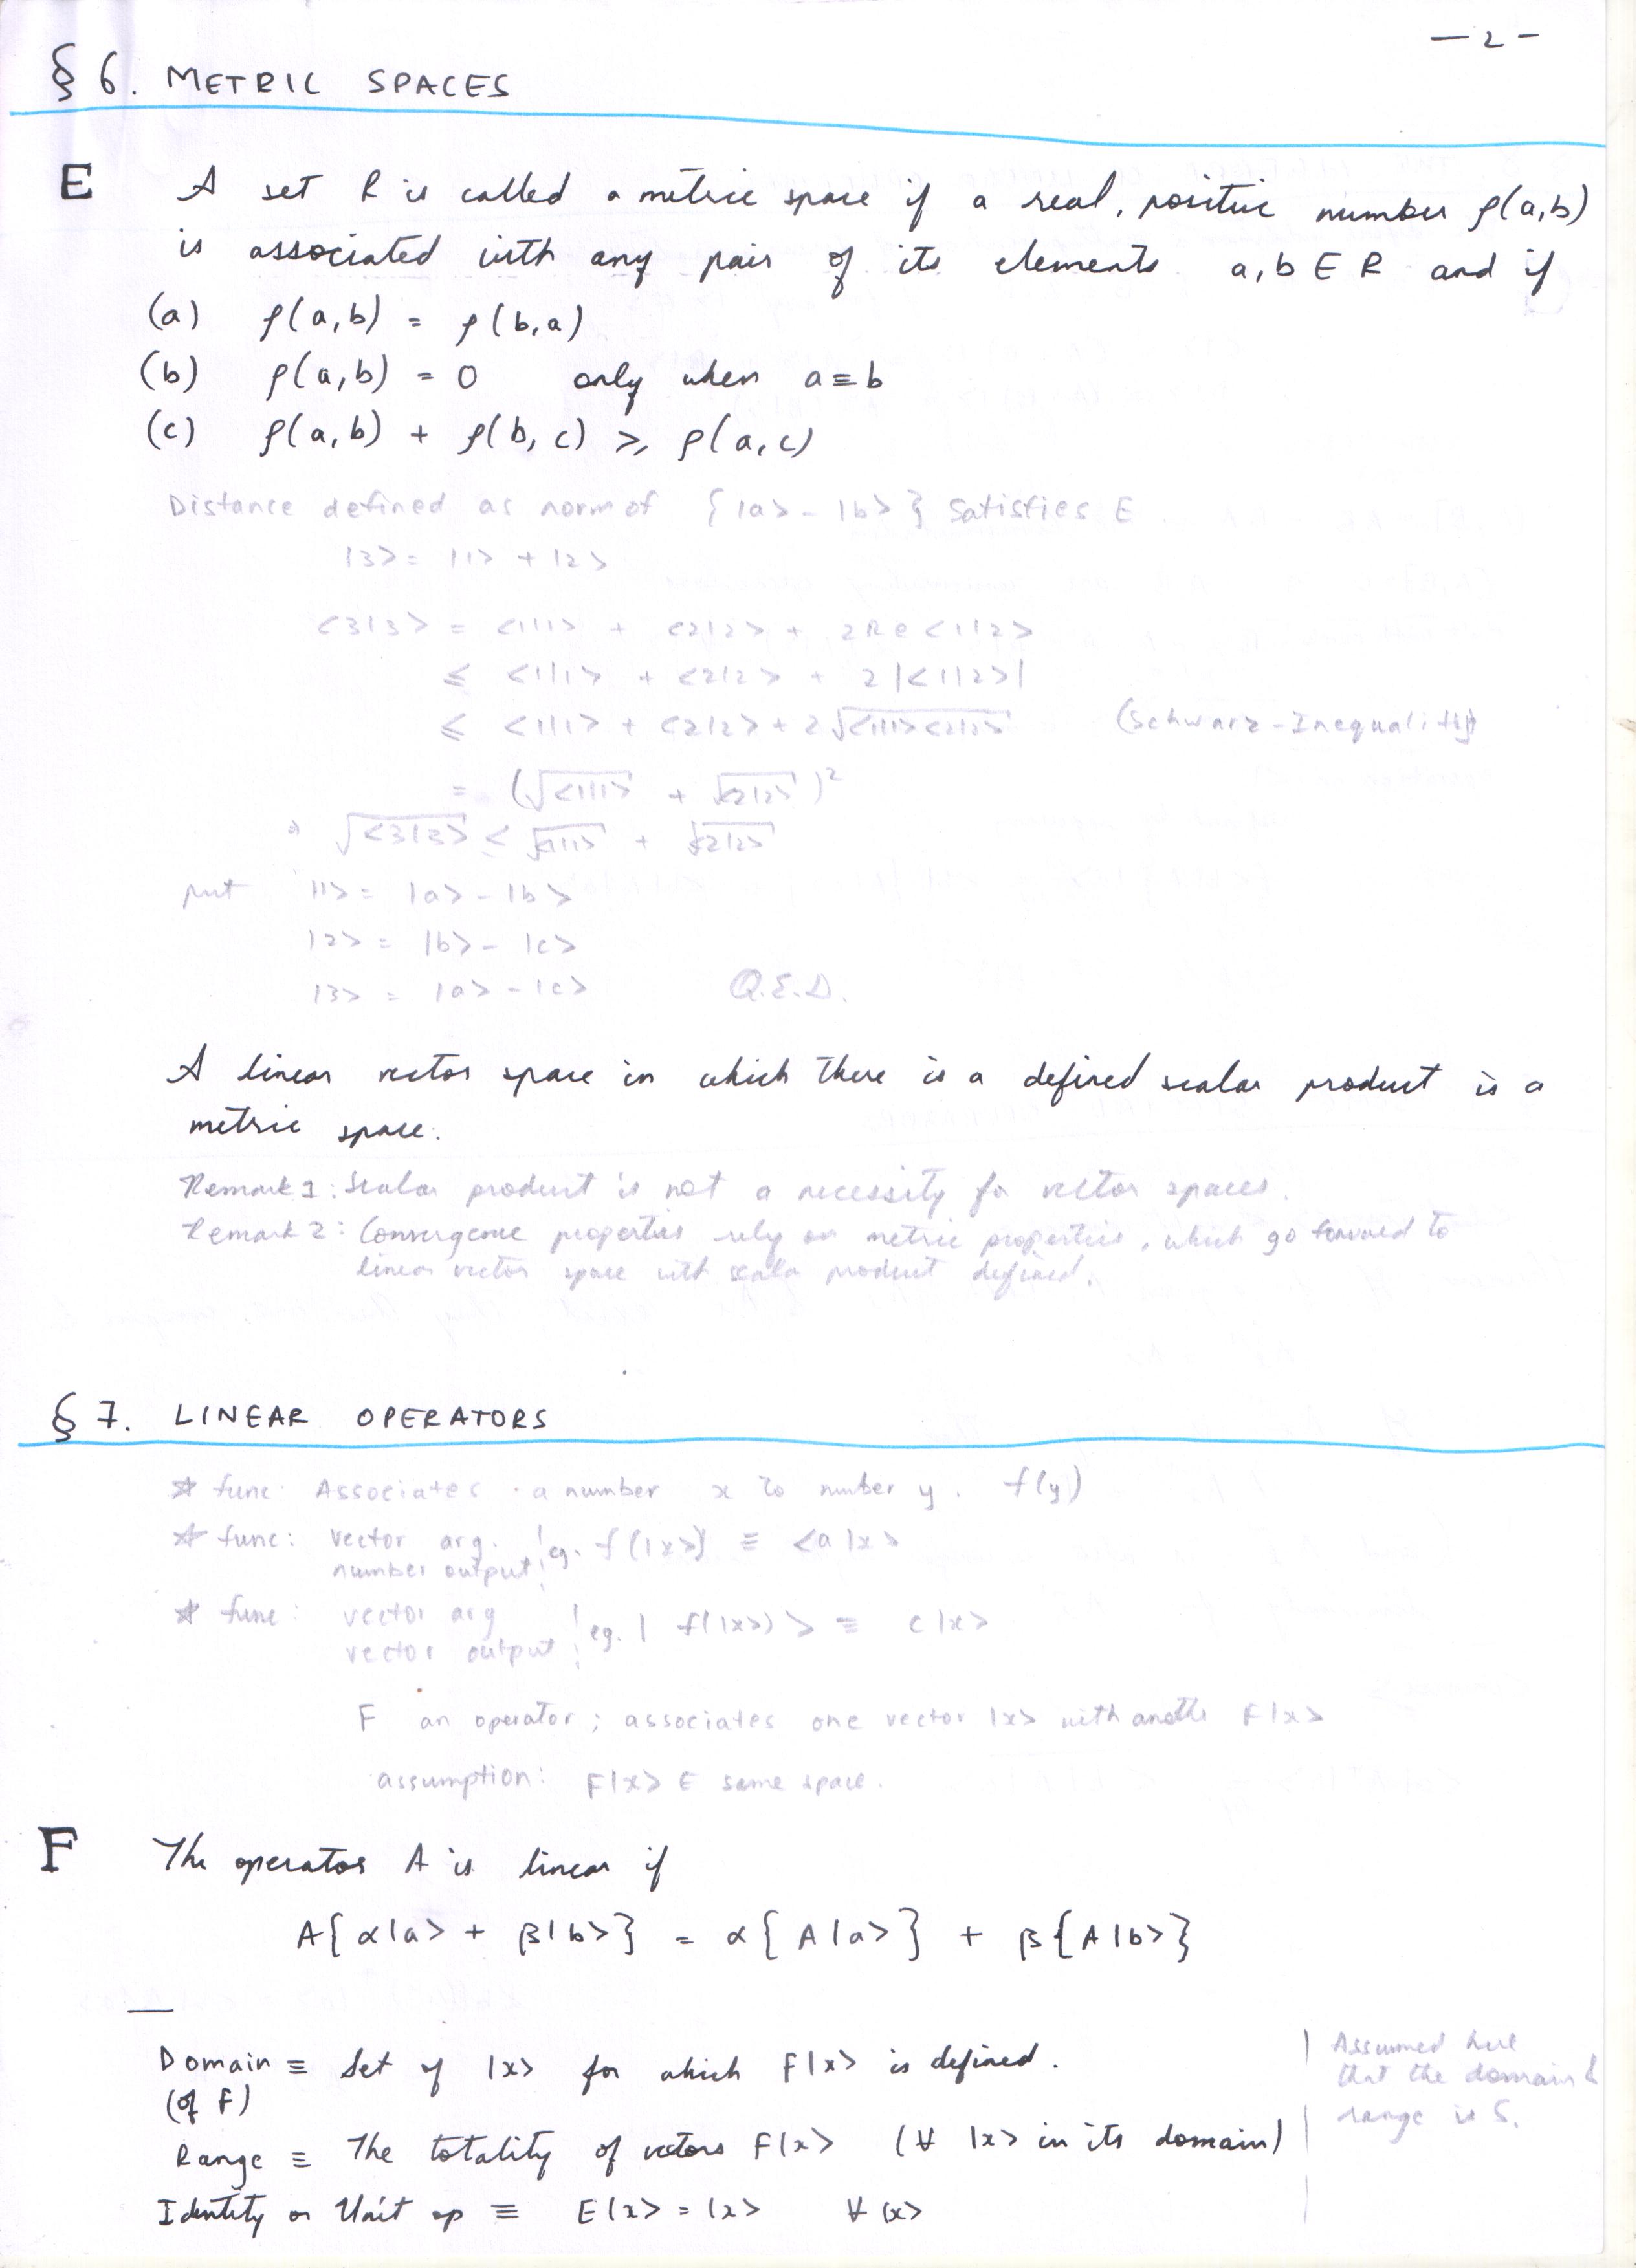 — 2 —
§ 6. METRIC SPACES
E A set R is called a metric space if a real, positive number ρ(a,b)
is associated with any pair of its elements a, b ∈ R and if
(a) ρ(a,b) = ρ(b,a)
(b) ρ(a,b) = 0 only when a ≡ b
(c) ρ(a,b) + ρ(b,c) ⩾ ρ(a,c)
Distance defined as norm of {|a> - |b>} satisfies E.
|3> = |1> + |2>
<3|3> = <1|1> + <2|2> + 2Re<1|2>
≤ <1|1> + <2|2> + 2|<1|2>|
≤ <1|1> + <2|2> + 2√<1|1><2|2> (Schwarz-Inequality)
= (√<1|1> + √<2|2>)²
⇒ √<3|3> ≤ √<1|1> + √<2|2>
put |1> = |a> - |b>
|2> = |b> - |c>
|3> = |a> - |c> Q.E.D.
A linear vector space in which there is a defined scalar product is a
metric space.
Remark 1: Scalar product is not a necessity for vector spaces.
Remark 2: Convergence properties rely on metric properties, which go forward to
linear vector space with scalar product defined.
§ 7. LINEAR OPERATORS
* func: Associates a number x to number y. f(y)
* func: vector arg. eg. f(|x>) ≡ <a|x>
number output
* func: vector arg eg. | f(|x>) > ≡ c|x>
vector output
F an operator; associates one vector |x> with another F|x>
assumption: F|x> ∈ same space.
F The operator A is linear if
A{α|a> + β|b>} = α{A|a>} + β{A|b>}
Domain ≡ Set of |x> for which F|x> is defined.
(of F)
Range ≡ The totality of vectors F|x> (∀ |x> in its domain)
Identity or Unit op ≡ E|x> = |x> ∀ |x>
Assumed here
that the domain &
range is S.